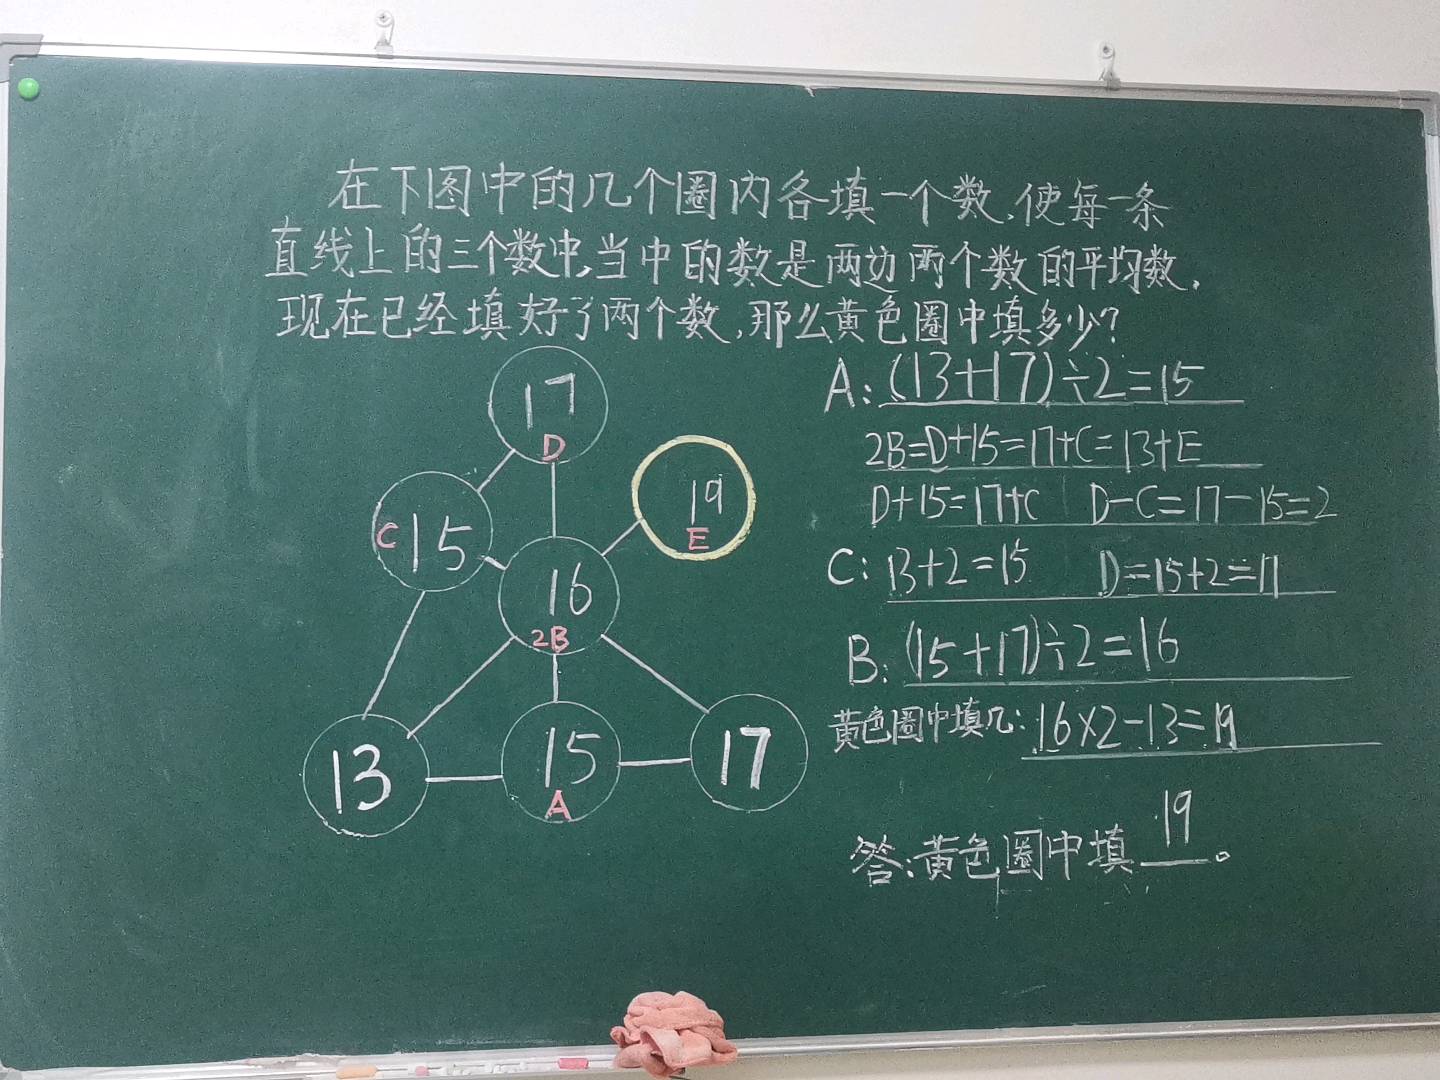 在下图中的几个圈内各填一个数,使每一条
直线上的三个数中,当中的数是两边两个数的平均数,
现在已经填好了两个数,那么黄色圈中填多少?
17
D
19
E
C 15
16
2B
13
15
A
17
A: (13+17)÷2=15
2B=D+15=17+C=13+E
D+15=17+C D-C=17-15=2
C: 13+2=15 D=15+2=17
B: (15+17)÷2=16
黄色圈中填几: 16×2-13=19
答:黄色圈中填19。